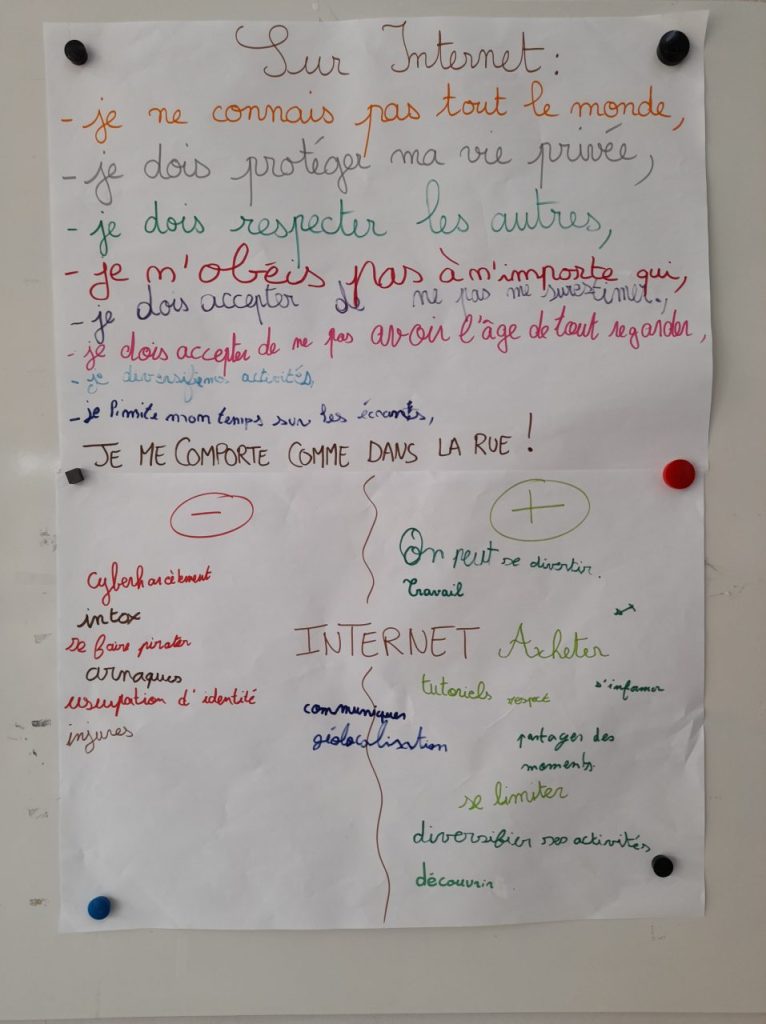 Sur Internet :
- je ne connais pas tout le monde,
- je dois protéger ma vie privée,
- je dois respecter les autres,
- je n'obéis pas à n'importe qui,
- je dois accepter de ne pas me surestimer.,
- je dois accepter de ne pas avoir l'âge de tout regarder,
- je diversifie mes activités,
- je limite mon temps sur les écrants,
JE ME COMPORTE COMME DANS LA RUE !
-
+
cyberharcèlement
intox
se faire pirater
arnaques
usurpation d'identité
injures
INTERNET
communiquer
géolocalisation
On peut se divertir.
Travail
Acheter
tutoriels respect
s'informer
partager des
moments
se limiter
diversifier ses activités
découvrir